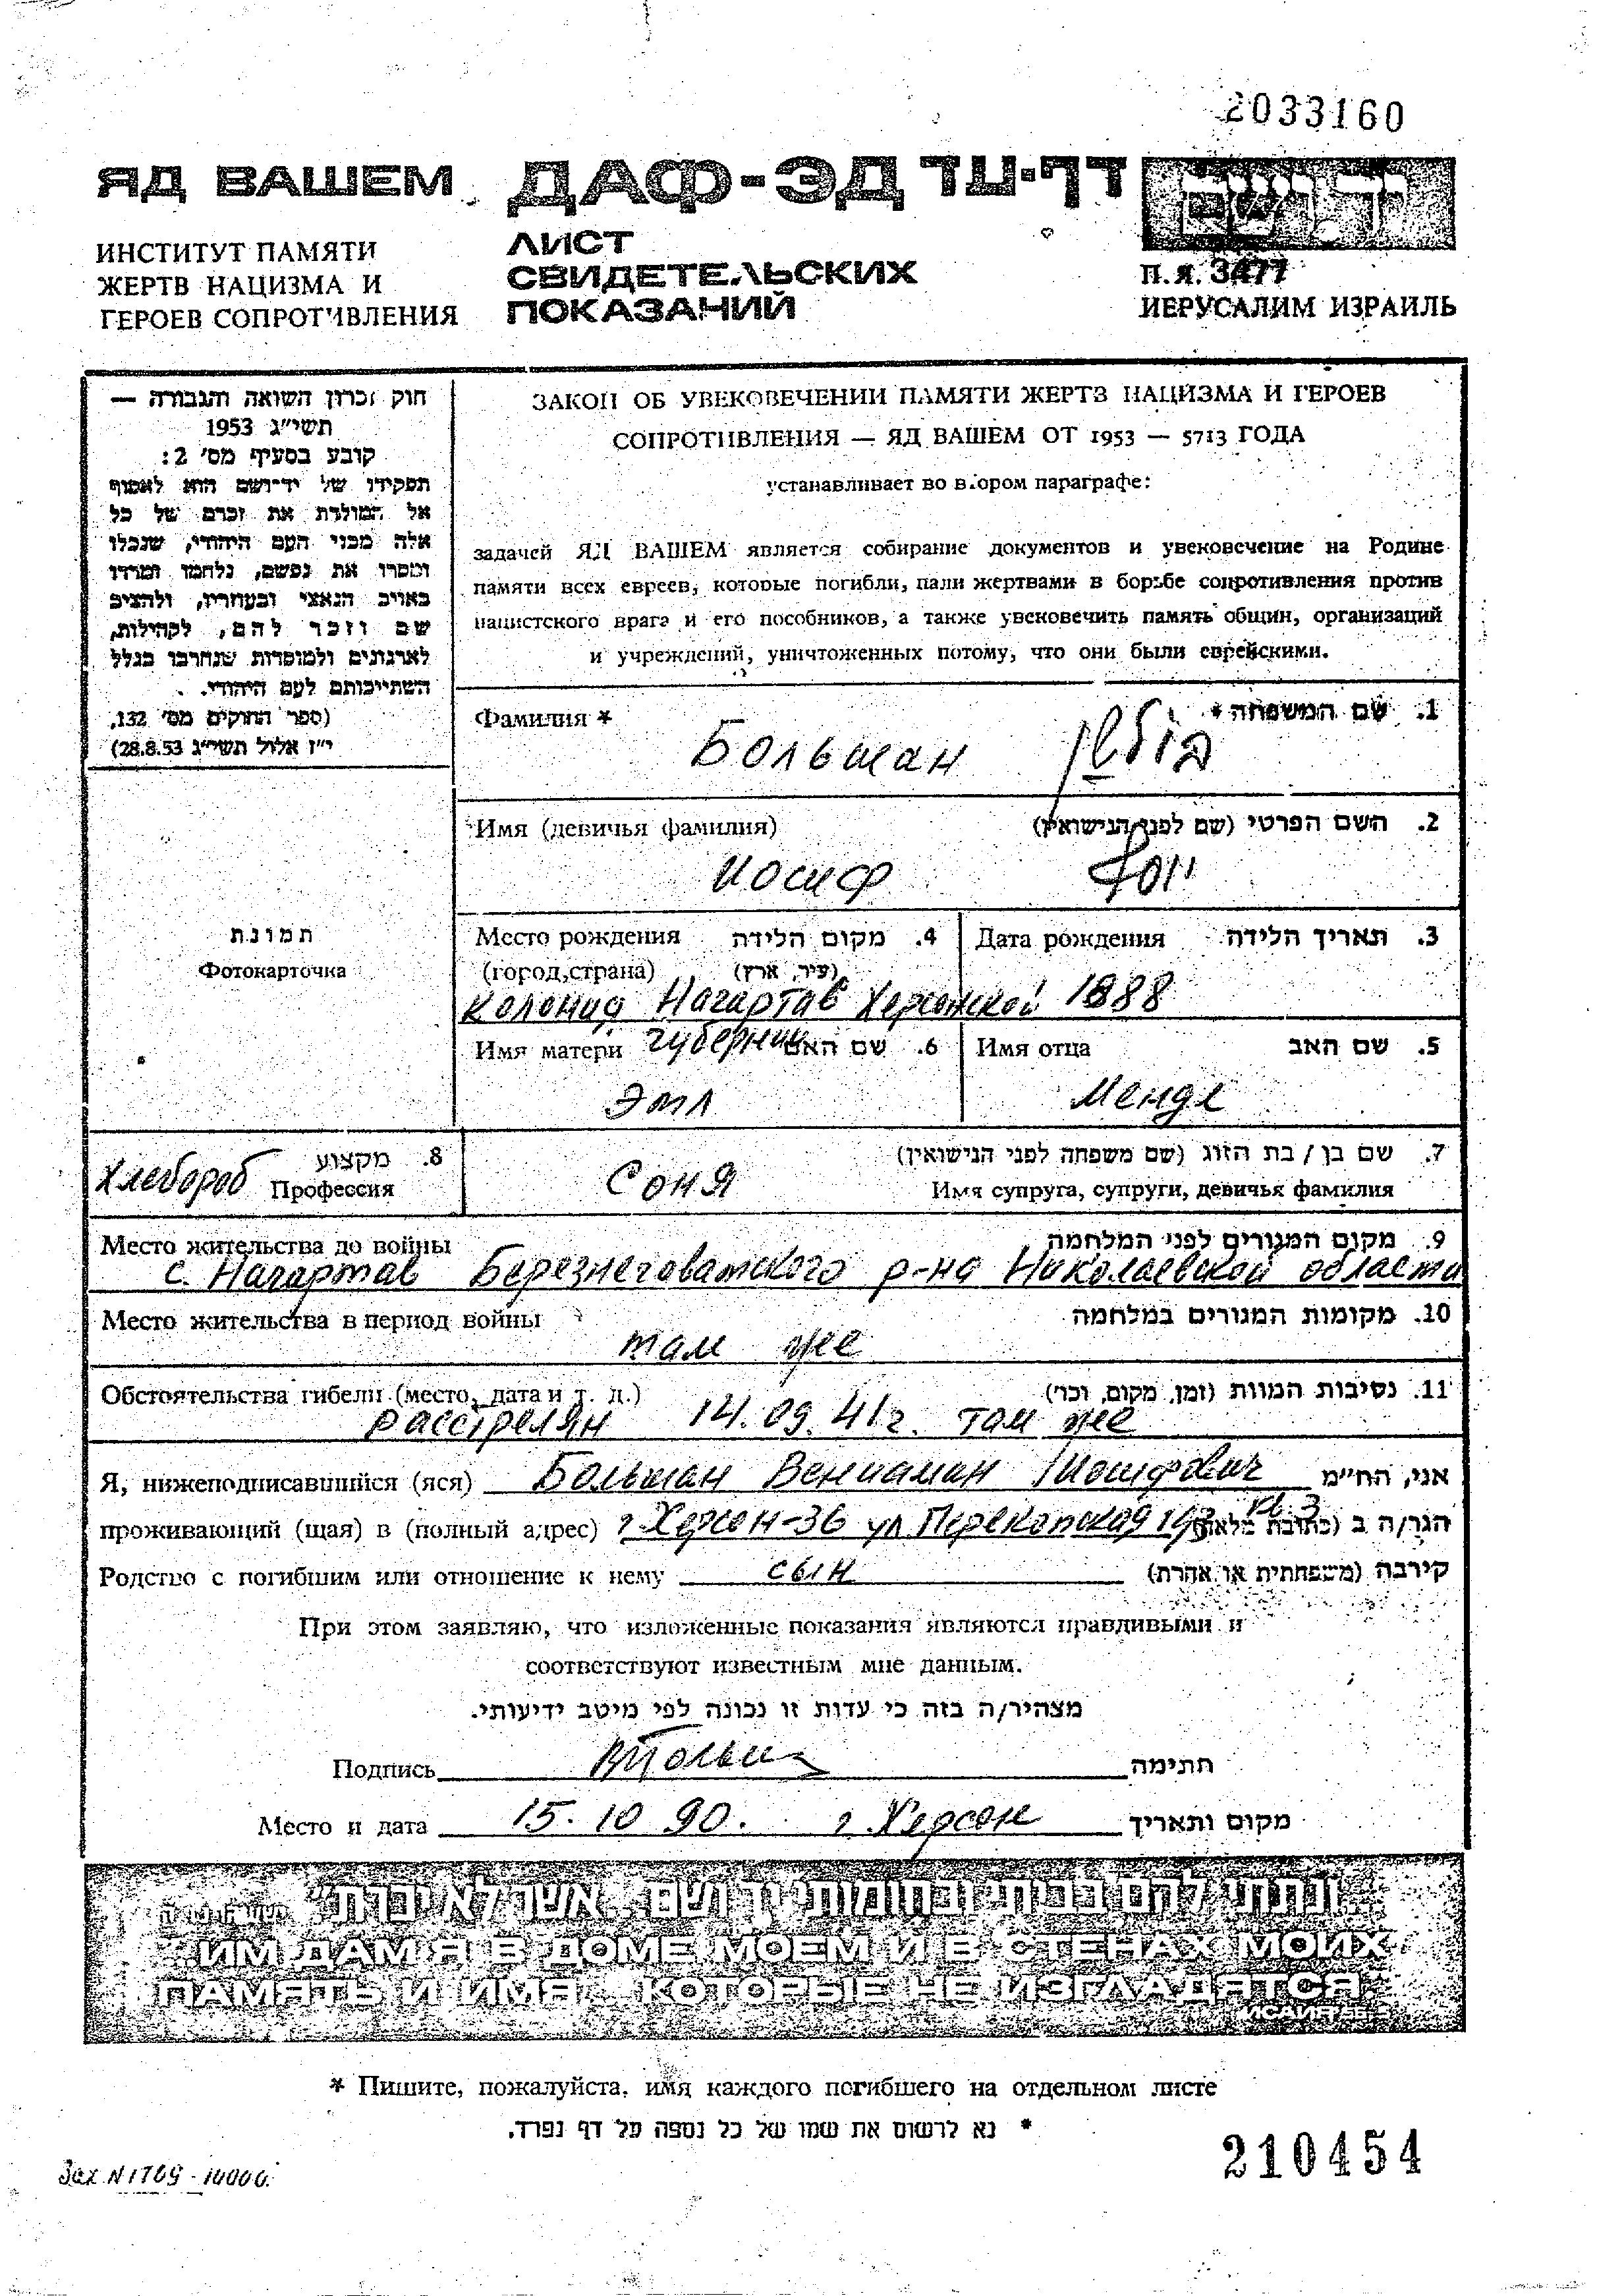 2033160
ЯД ВАШЕМ ДАФ-ЭД דף-עד
ИНСТИТУТ ПАМЯТИ
ЖЕРТВ НАЦИЗМА И
ГЕРОЕВ СОПРОТИВЛЕНИЯ
ЛИСТ
СВИДЕТЕЛЬСКИХ
ПОКАЗАНИЙ
П.Я. 3477
ИЕРУСАЛИМ ИЗРАИЛЬ
חוק זכרון השואה והגבורה —
תשי"ג 1953
קובע בסעיף מס' 2:
תפקידו של יד-ושם הוא לאסוף
אל המולדת את זכרם של כל
אלה מבני העם היהודי, שנפלו
ומסרו את נפשם, נלחמו ומרדו
באויב הנאצי ובעוזריו, ולהציב
שם וזכר להם, לקהילות,
לארגונים ולמוסדות שנחרבו בגלל
השתייכותם לעם היהודי.
(ספר החוקים מס' 132,
י"ז אלול תשי"ג 28.8.53)
ЗАКОН ОБ УВЕКОВЕЧЕНИИ ПАМЯТИ ЖЕРТВ НАЦИЗМА И ГЕРОЕВ
СОПРОТИВЛЕНИЯ — ЯД ВАШЕМ ОТ 1953 — 5713 ГОДА
устанавливает во втором параграфе:
задачей ЯД ВАШЕМ является собирание документов и увековечение на Родине
памяти всех евреев, которые погибли, пали жертвами в борьбе сопротивления против
нацистского врага и его пособников, а также увековечить память общин, организаций
и учреждений, уничтоженных потому, что они были еврейскими.
Фамилия * 1. שם המשפחה *
Большан בולשן
Имя (девичья фамилия) 2. השם הפרטי (שם לפני הנישואין)
Иосиф יוסף
תמונה
Фотокарточка
Место рождения 4. מקום הלידה
(город,страна) (עיר, ארץ)
Дата рождения 3. תאריך הלידה
колония Нагартав Херсонской 1888
губернии
Имя матери 6. שם האם
Имя отца 5. שם האב
Этл Мендл
8. מקצוע
Хлебороб Профессия
7. שם בן / בת הזוג (שם משפחה לפני הנישואין)
Соня Имя супруга, супруги, девичья фамилия
Место жительства до войны 9. מקום המגורים לפני המלחמה
с. Нагартав Березнеговатского р-на Николаевской области
Место жительства в период войны 10. מקומות המגורים במלחמה
там же
Обстоятельства гибели (место, дата и т. д.) 11. נסיבות המוות (זמן, מקום, וכו')
расстрелян 14.09.41г. там же
Я, нижеподписавшийся (яся) Большан Вениамин Иосифович אני, הח"מ
проживающий (щая) в (полный адрес) г.Херсон-36 ул Перекопская кв. 3 הגר/ה ב (כתובת מלאה)
Родство с погибшим или отношение к нему сын קירבה (משפחתית או אחרת)
При этом заявляю, что изложенные показания являются правдивыми и
соответствуют известным мне данным.
מצהיר/ה בזה כי עדות זו נכונה לפי מיטב ידיעותי.
Подпись חתימה
Место и дата 15.10 90. г. Херсон מקום ותאריך
ונתתי להם בביתי ובחומותי יד ושם... אשר לא יכרת"
ИМ ДАМ Я В ДОМЕ МОЕМ И В СТЕНАХ МОИХ
ПАМЯТЬ И ИМЯ КОТОРЫЕ НЕ ИЗГЛАДЯТСЯ
* Пишите, пожалуйста, имя каждого погибшего на отдельном листе
* נא לרשום את שמו של כל נספה על דף נפרד.
210454
Зак. N 1769 - 10000.